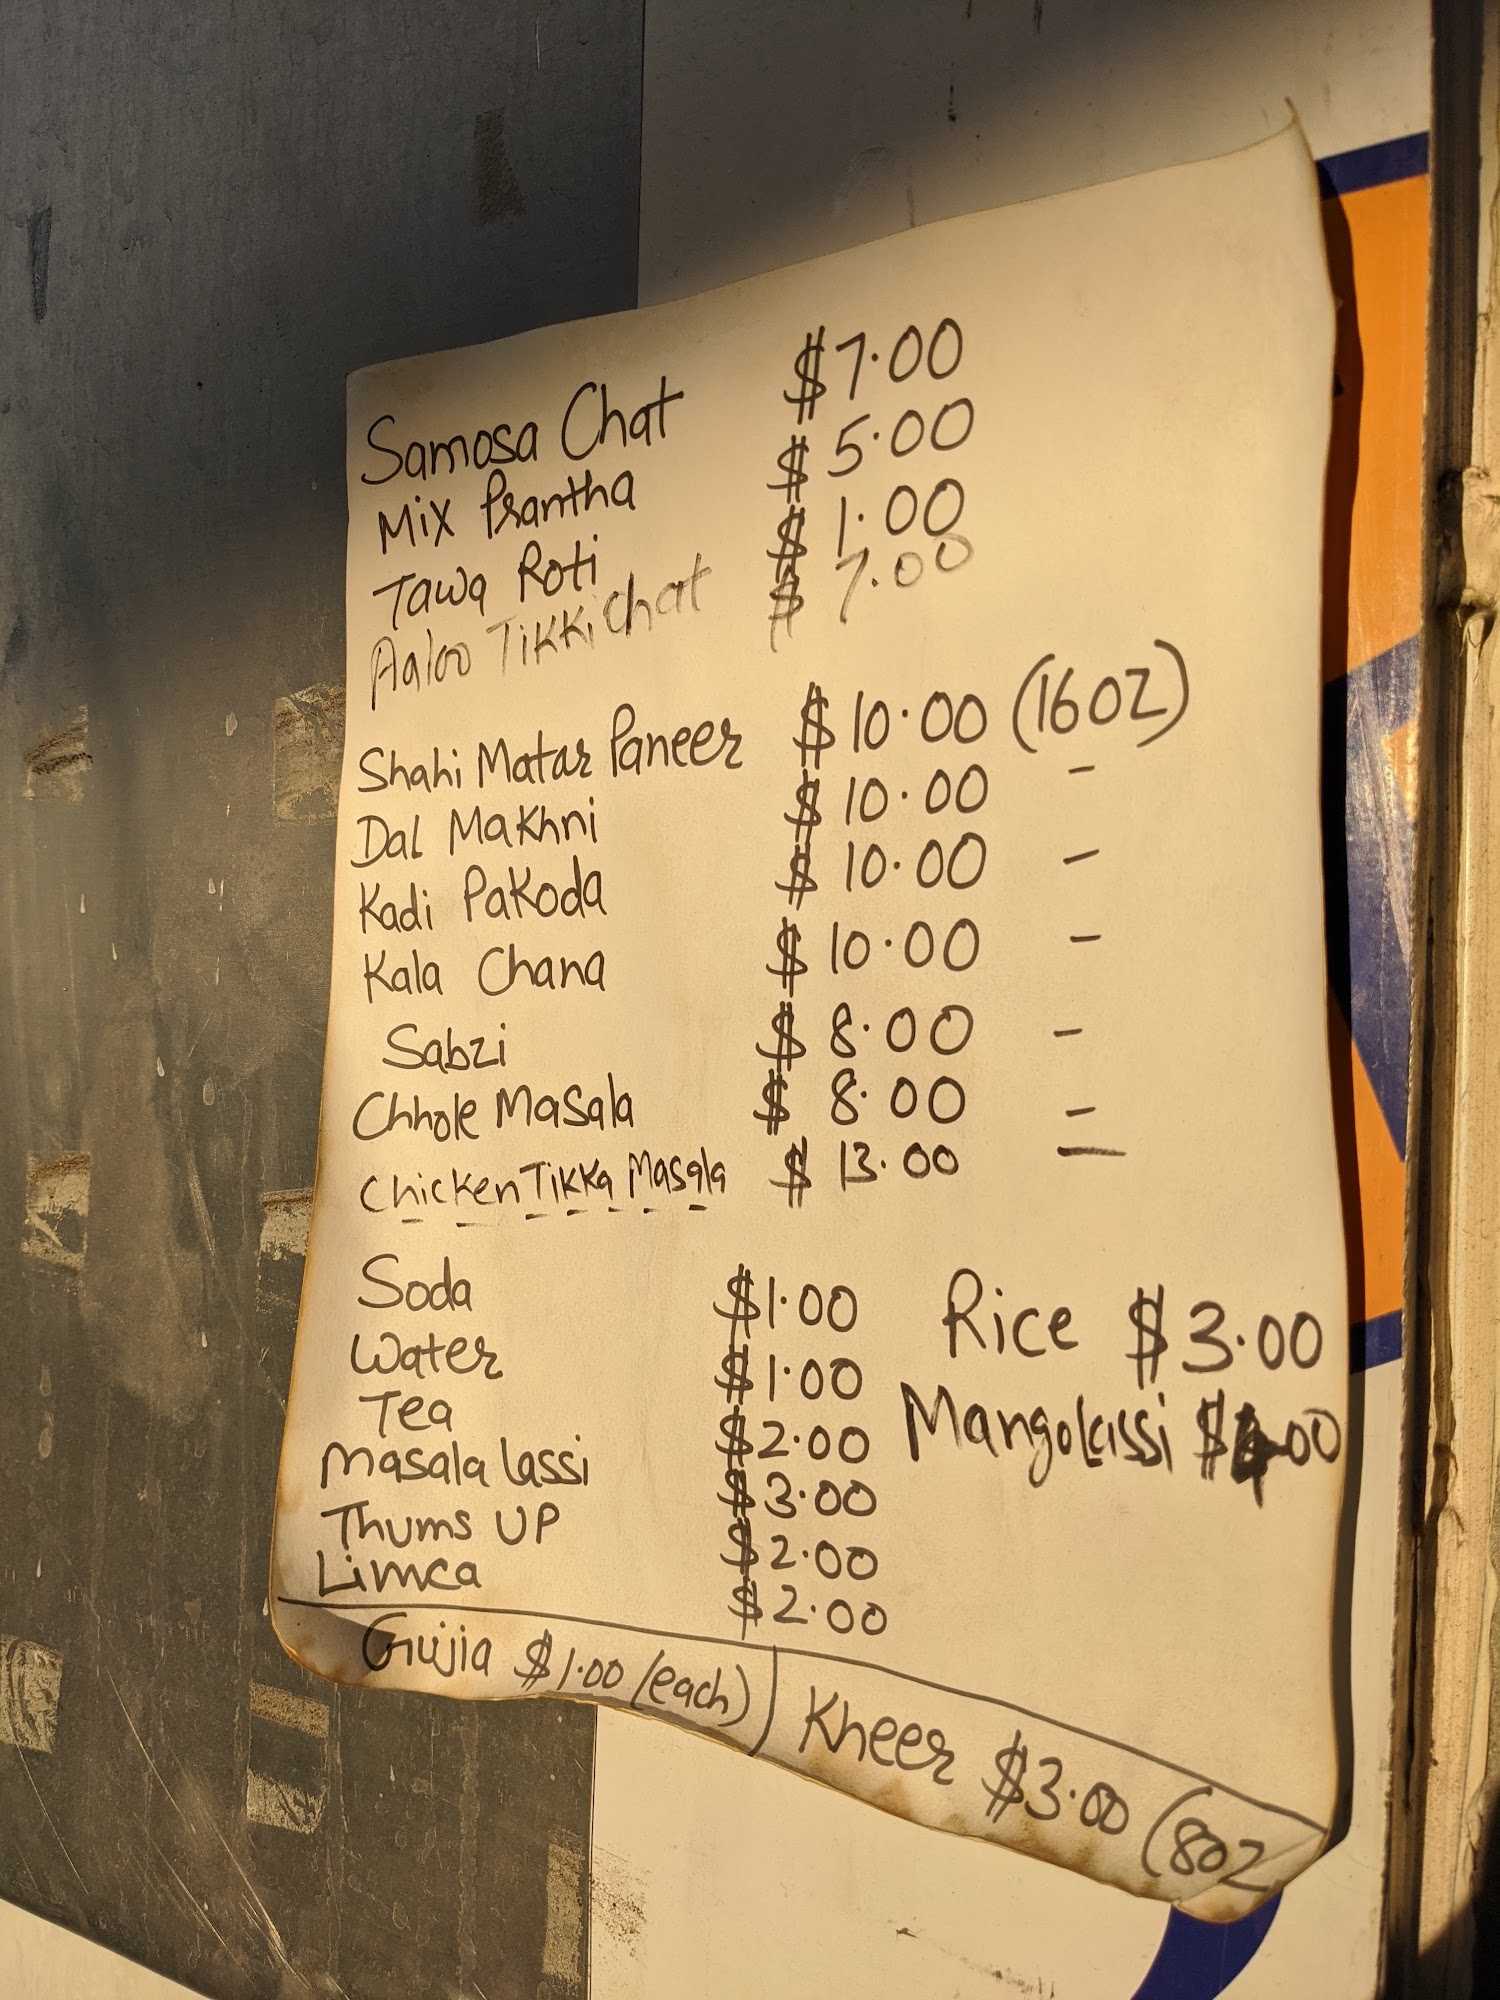 Samosa Chat $7.00
Mix Prantha $5.00
Tawa Roti $1.00
Aaloo Tikki chat $7.00
Shahi Matar Paneer $10.00 (16oz)
Dal Makhni $10.00 -
Kadi Pakoda $10.00 -
Kala Chana $10.00 -
Sabzi $8.00 -
Chhole Masala $8.00 -
Chicken Tikka Masala $13.00 -
Soda $1.00
Water $1.00
Tea $2.00
Masala lassi $3.00
Thums UP $2.00
Limca $2.00
Rice $3.00
Mango Lassi $4.00
Gujia $1.00 (each)
Kheer $3.00 (8oz